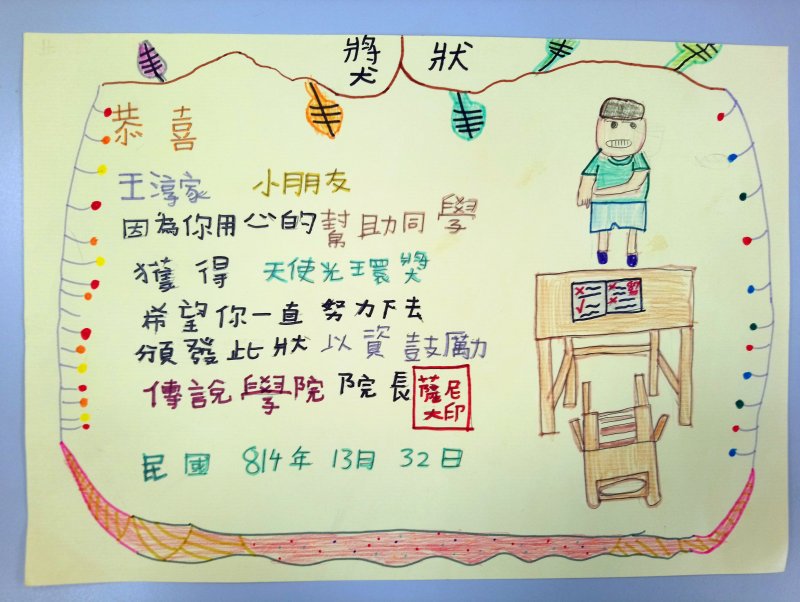 獎狀
恭喜
王淳家 小朋友
因為你用心的幫助同學
獲得 天使光環獎
希望你一直努力下去
頒發此狀以資鼓勵
傳說學院院長 薩尼大印
民國 814年 13月 32日